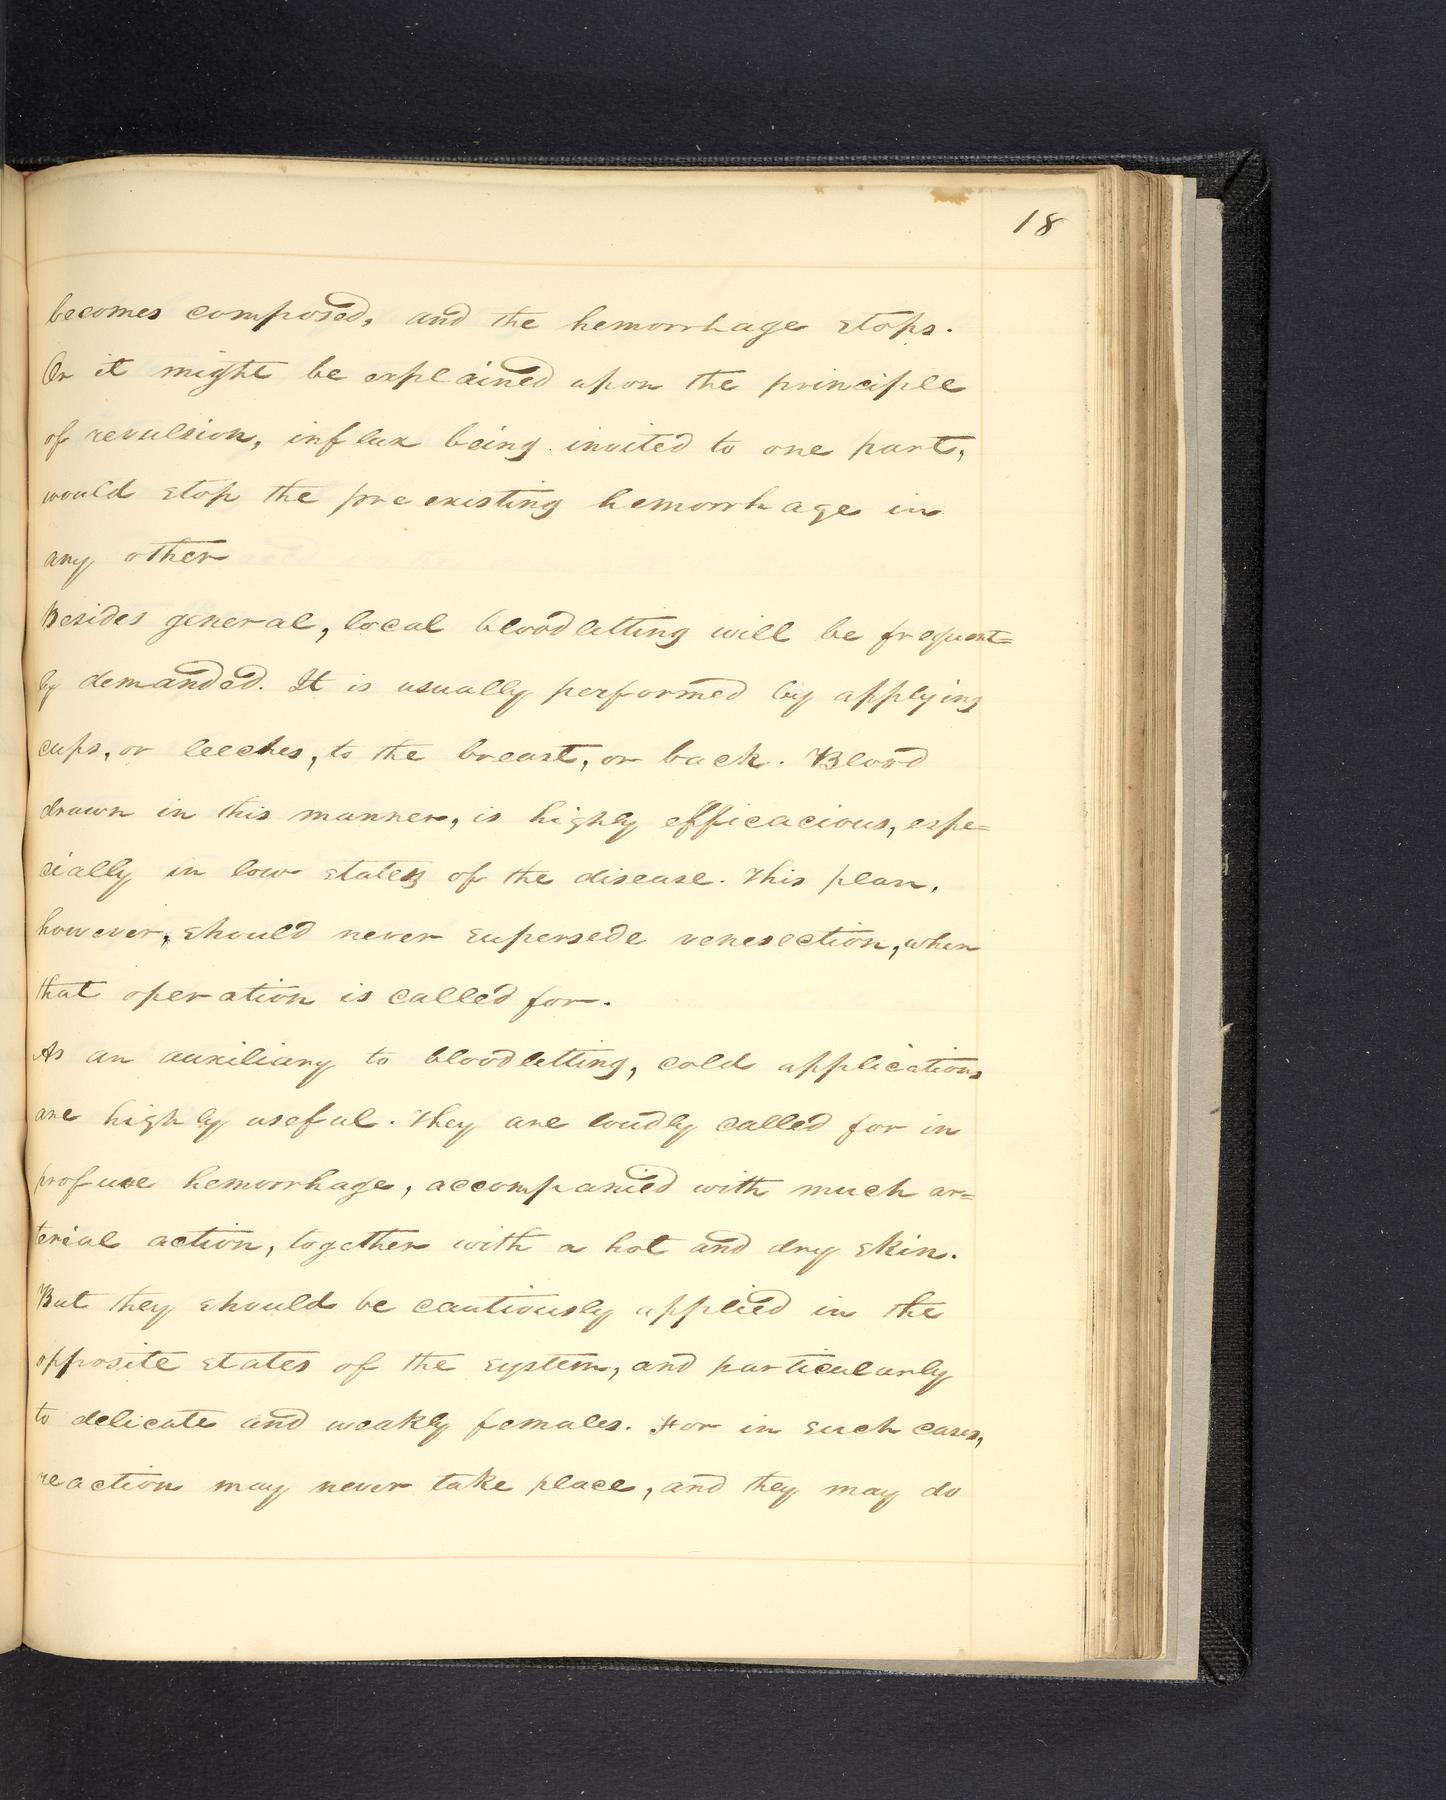 18
becomes composed, and the hemorrhage stops.
Or it might be explained upon the principle
of revulsion, influx being invited to one part,
would stop the pre existing hemorrhage in
any other
Besides general, local bloodletting will be frequent=
ly demanded. It is usually performed by applying
cups, or leeches, to the breast, or back. Blood
drawn in this manner, is highly efficacious, espe=
cially in low states of the disease. This plan,
however, should never supersede venesection, when
that operation is called for.
As an auxiliary to bloodletting, cold applications
are highly useful. They are loudly called for in
profuse hemorrhage, accompanied with much ar=
terial action, together with a hot and dry skin.
But they should be cautiously applied in the
opposite states of the system, and particularly
to delicate and weakly females. For in such cases,
reaction may never take place, and they may do